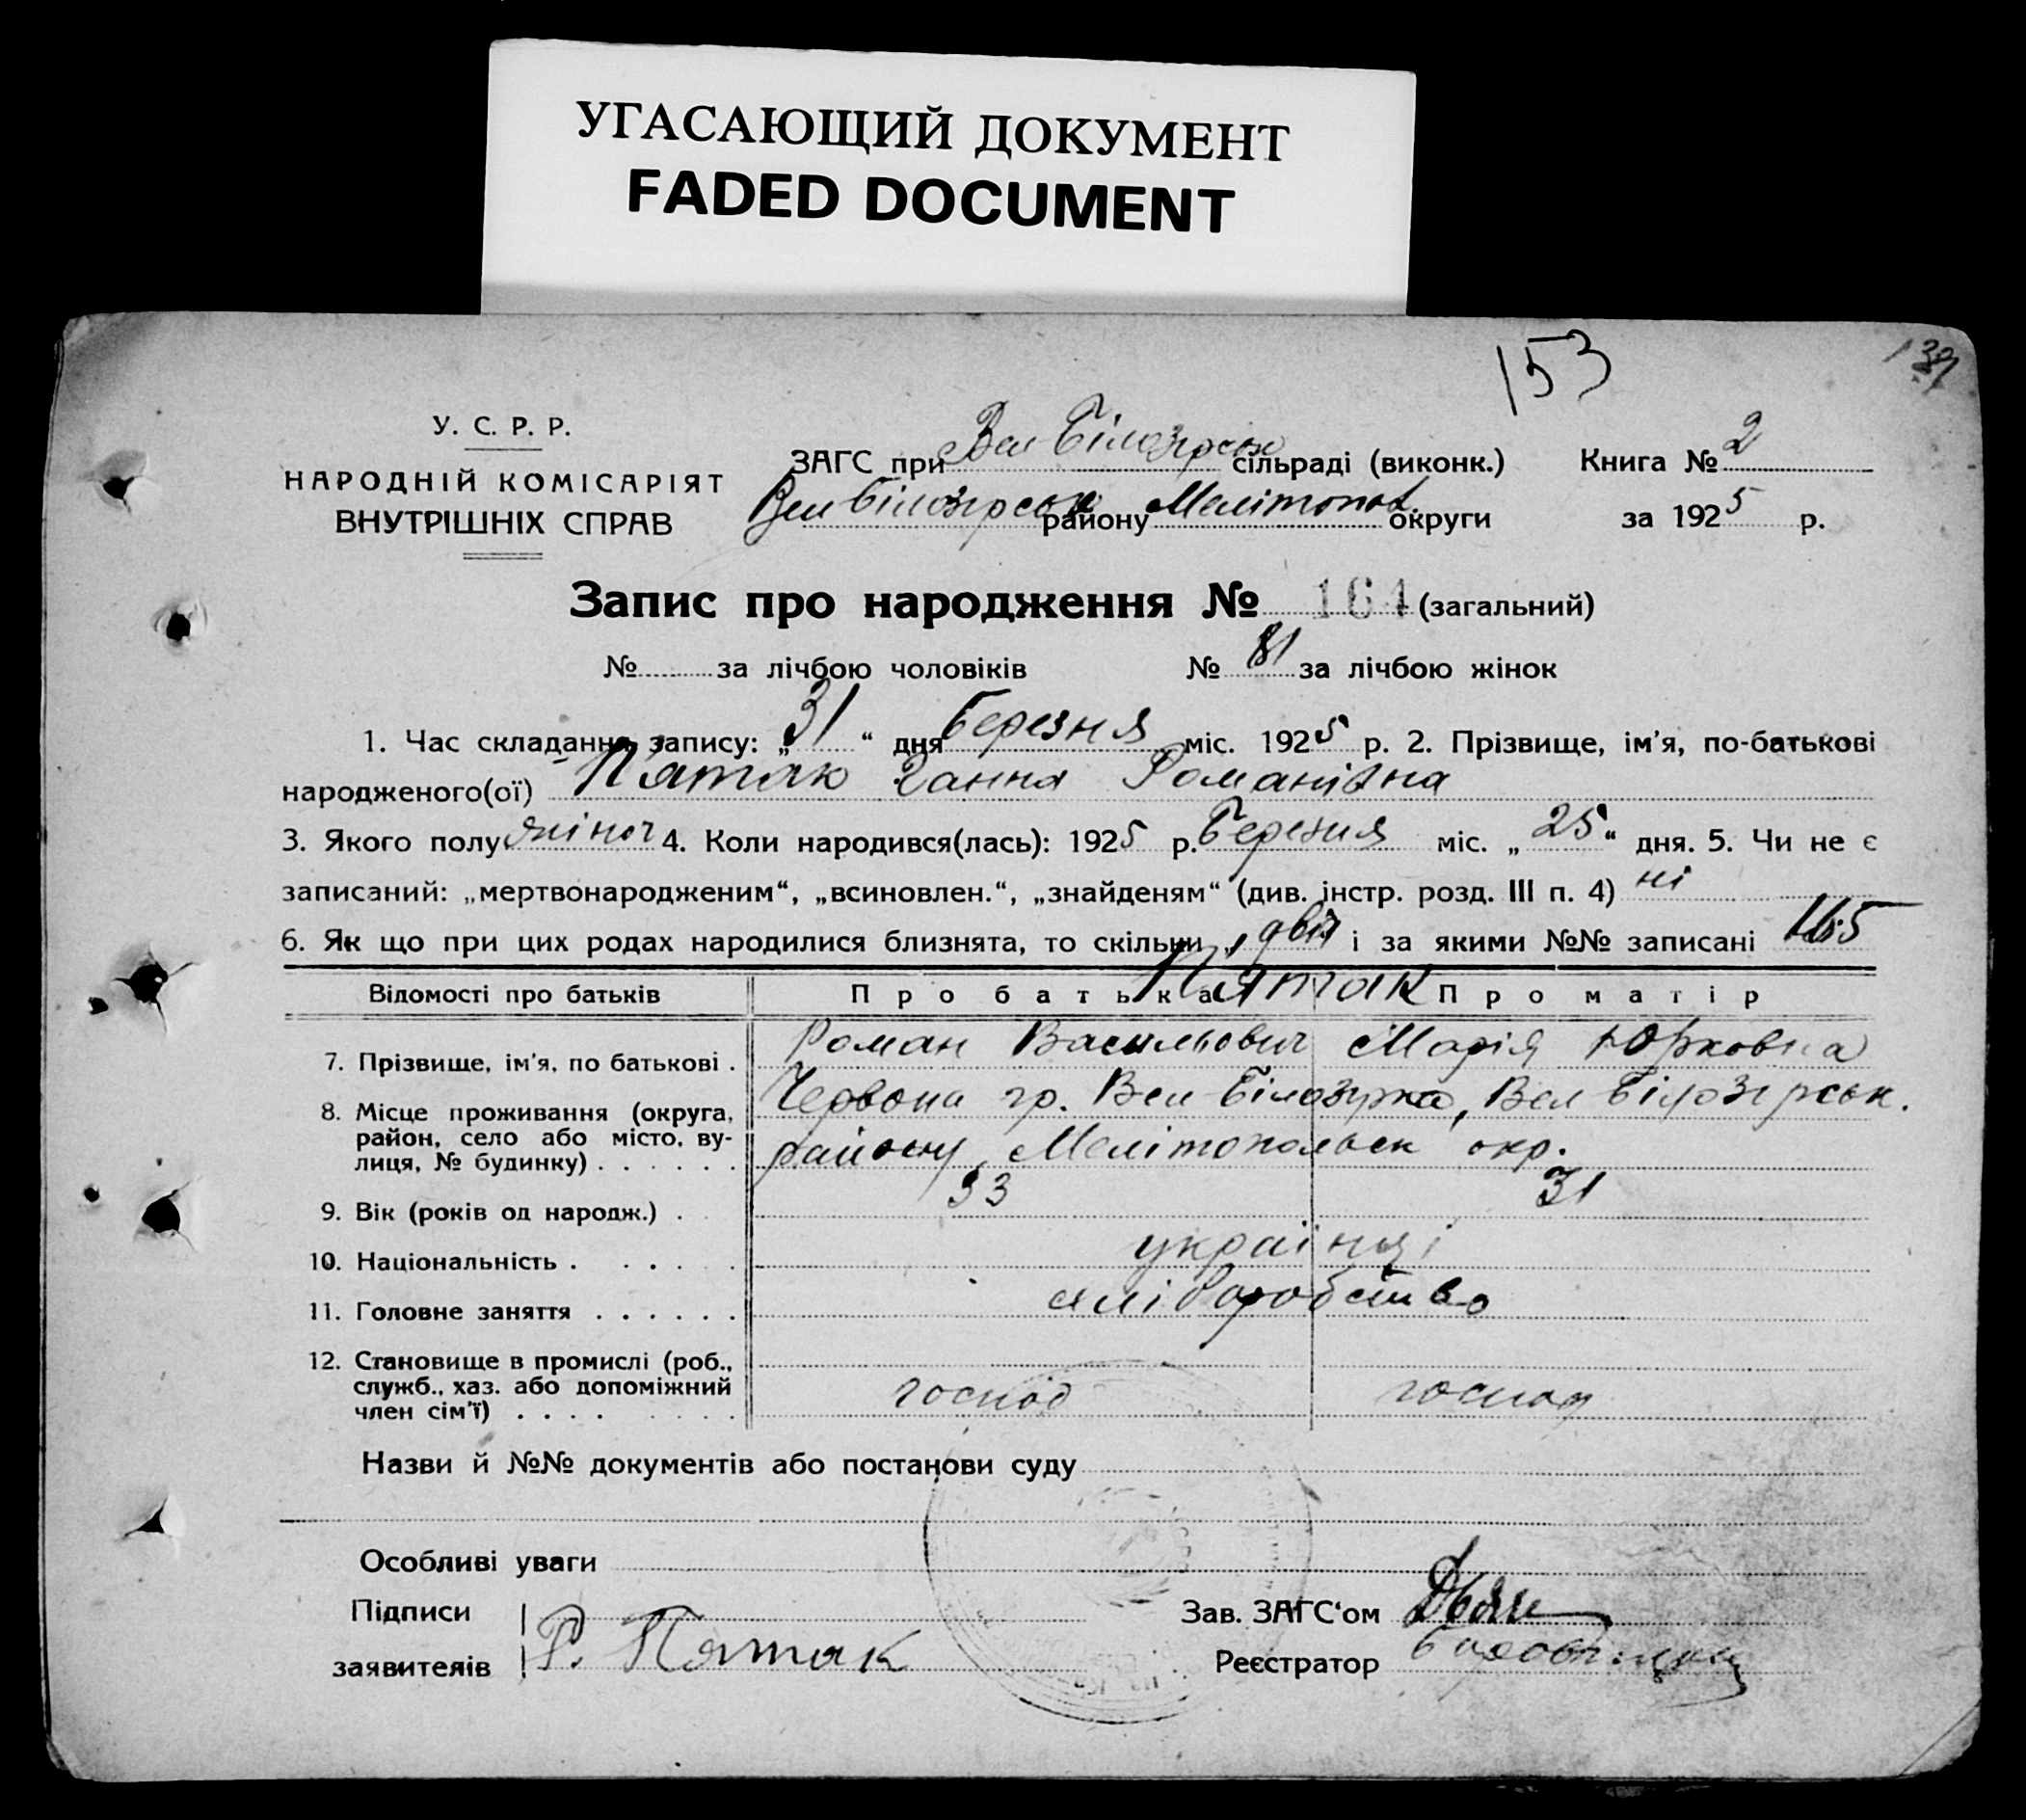 УГАСАЮЩИЙ ДОКУМЕНТ
FADED DOCUMENT
153
139
У. С. Р. Р.
НАРОДНІЙ КОМІСАРІЯТ
ВНУТРІШНІХ СПРАВ
ЗАГС при Вел Білозірськ сільраді (виконк.) Книга № 2
Вел Білозірськ району Мелітопол. округи за 1925 р.
Запис про народження № 164 (загальний)
№ за лічбою чоловіків № 81 за лічбою жінок
1. Час складання запису: „31“ дня березня міс. 1925 р. 2. Прізвище, ім'я, по-батькові
народженого(ої) П'ятак Ганна Романівна
3. Якого полу жіноч 4. Коли народився(лась): 1925 р. березня міс. „25“ дня. 5. Чи не є
записаний: „мертвонародженим“, „всиновлен.“, „знайденям“ (див. інстр. розд. III п. 4) ні
6. Як що при цих родах народилися близнята, то скільки „двія і за якими №№ записані 165
Відомості про батьків Про батька П'ятак Про матір
7. Прізвище, ім'я, по батькові . Роман Васильович Марія Юрковна
8. Місце проживання (округа, Червона гр. Вел Білозірка, Вел Білозірськ.
район, село або місто, ву-
лиця, № будинку) . . . . . . району, Мелітопольск окр.
9. Вік (років од народж.) . 33 31
10. Національність . . . . . українці
11. Головне заняття . . . . . . хліборобство
12. Становище в промислі (роб.,
служб., хаз. або допоміжний
член сім'ї) . . . . . . . . господ господ
Назви й №№ документів або постанови суду
Особливі уваги
Підписи Зав. ЗАГС'ом
заявителів Р. Пятак Реєстратор